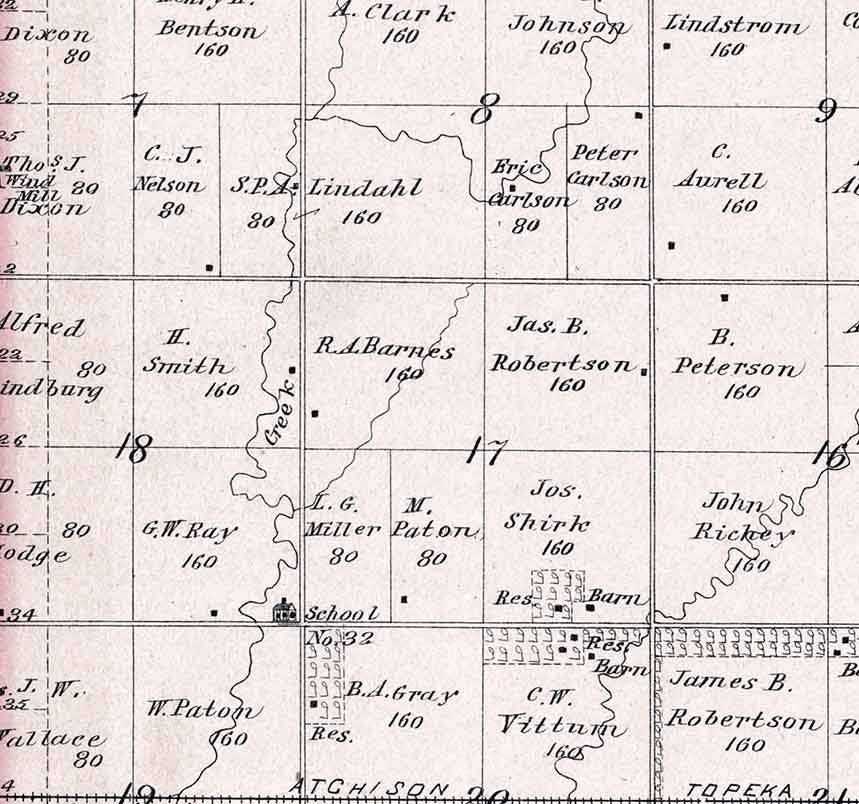 Dixon
80
Bentson
160
A. Clark
160
Johnson
160
Lindstrom
160
29
7
8
9
25
Thos J.
Wind
Mill 80
Dixon
C. J.
Nelson
80
S.P.A. Lindahl
80
160
Eric
Carlson
80
Peter
Carlson
80
C.
Aurell
160
2
Alfred
22
80
indburg
H.
Smith
160
Creek
R.A. Barnes
160
Jas. B.
Robertson
160
B.
Peterson
160
26
18
17
16
D. H.
80
odge
G.W. Ray
160
L. G.
Miller
80
M.
Paton
80
Jos.
Shirk
160
John
Richey
160
34
School
No. 32
Res.
Barn
Res.
Barn
J. W.
35
Wallace
80
W. Paton
160
B.A. Gray
160
Res.
C. W.
Vittum
160
James B.
Robertson
160
4
19
ATCHISON
20
TOPEKA